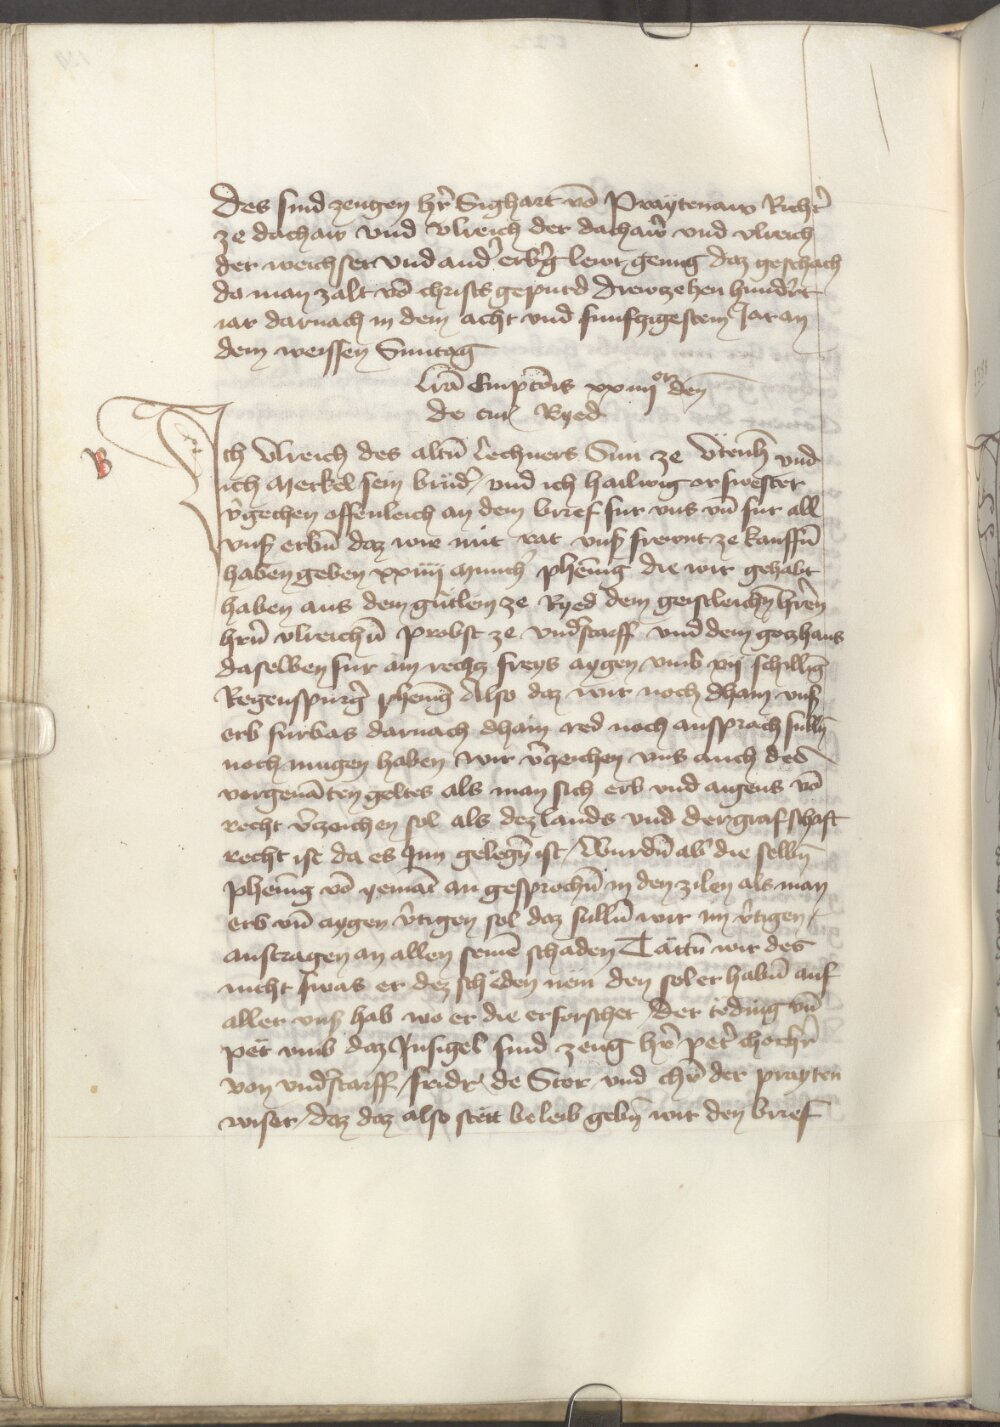 Des sind zeugen hr̄ Sighart vō Praytenaw Richt̄
ze dachaw vnd Vlreich der dachaw̄ vnd vlreich
der weichser vnd and̄ erb̄g lewt genug daz geschach
da man zalt vō christs gepurd drewzehen hundert
iar darnach in dem acht vnd funfzigestem Jar an
dem weissen Suntag
Lrā Empc̄ōis xxiiij or den̄
de cur̄ Ryed
B
Ich Vlreich des altn̄ Lechners Sun ze vnd
ich Merkel sein brüd̄ vnd ich hailwig or swester
v̄gechen offenleich an dem brief fur vns vn̄ fur all
vnß erbn̄ daz wir mit rat vnß frewnt ze kauffn̄
haben geben xxiiij Munch̄ phening die wir gehabt
haben aus dem gütlein ze Ryed dem geistleichn̄ hrēn
hrn̄ vlreichn̄ probst ze vnd̄starff vnd dem gotzhaus
daselben fur ain rechtz freys aygen vmb vij schilling
Regenspurḡ pheniḡ Also daz wir noch dhain vnß
erb furbas darnach dhain red noch ansprach sulln̄
noch mugen haben Wir v̄zeichen vns auch des
vorgenāten geltes als man sich erb vnd aigens vō
recht v̄zeichen sol als dez lands vnd der grafschaft
recht ist da es Inn gelegn̄ ist / Wurdn̄ aw̄ die selbn̄
pheniḡ vō yemāt an gesprochn̄ in den zilen als man
erb vn̄ aygen v̄tigen sol daz sulln̄ wir im v̄tigen /
austragen an allen seinē schaden Tättn̄ wir des
nicht swas er dez schäden nem den sol er habn̄ auf
aller vnß hab wo er die erforschet / Der täding vn̄
pet vmb daz Insigel sind zeug hr̄ pet̄ chorhr̄
von vnd̄starff / fridr̄ de Stor vnd chr̄ der prayten
wiser / daz daz also stett beleib gebn̄ wir den brief